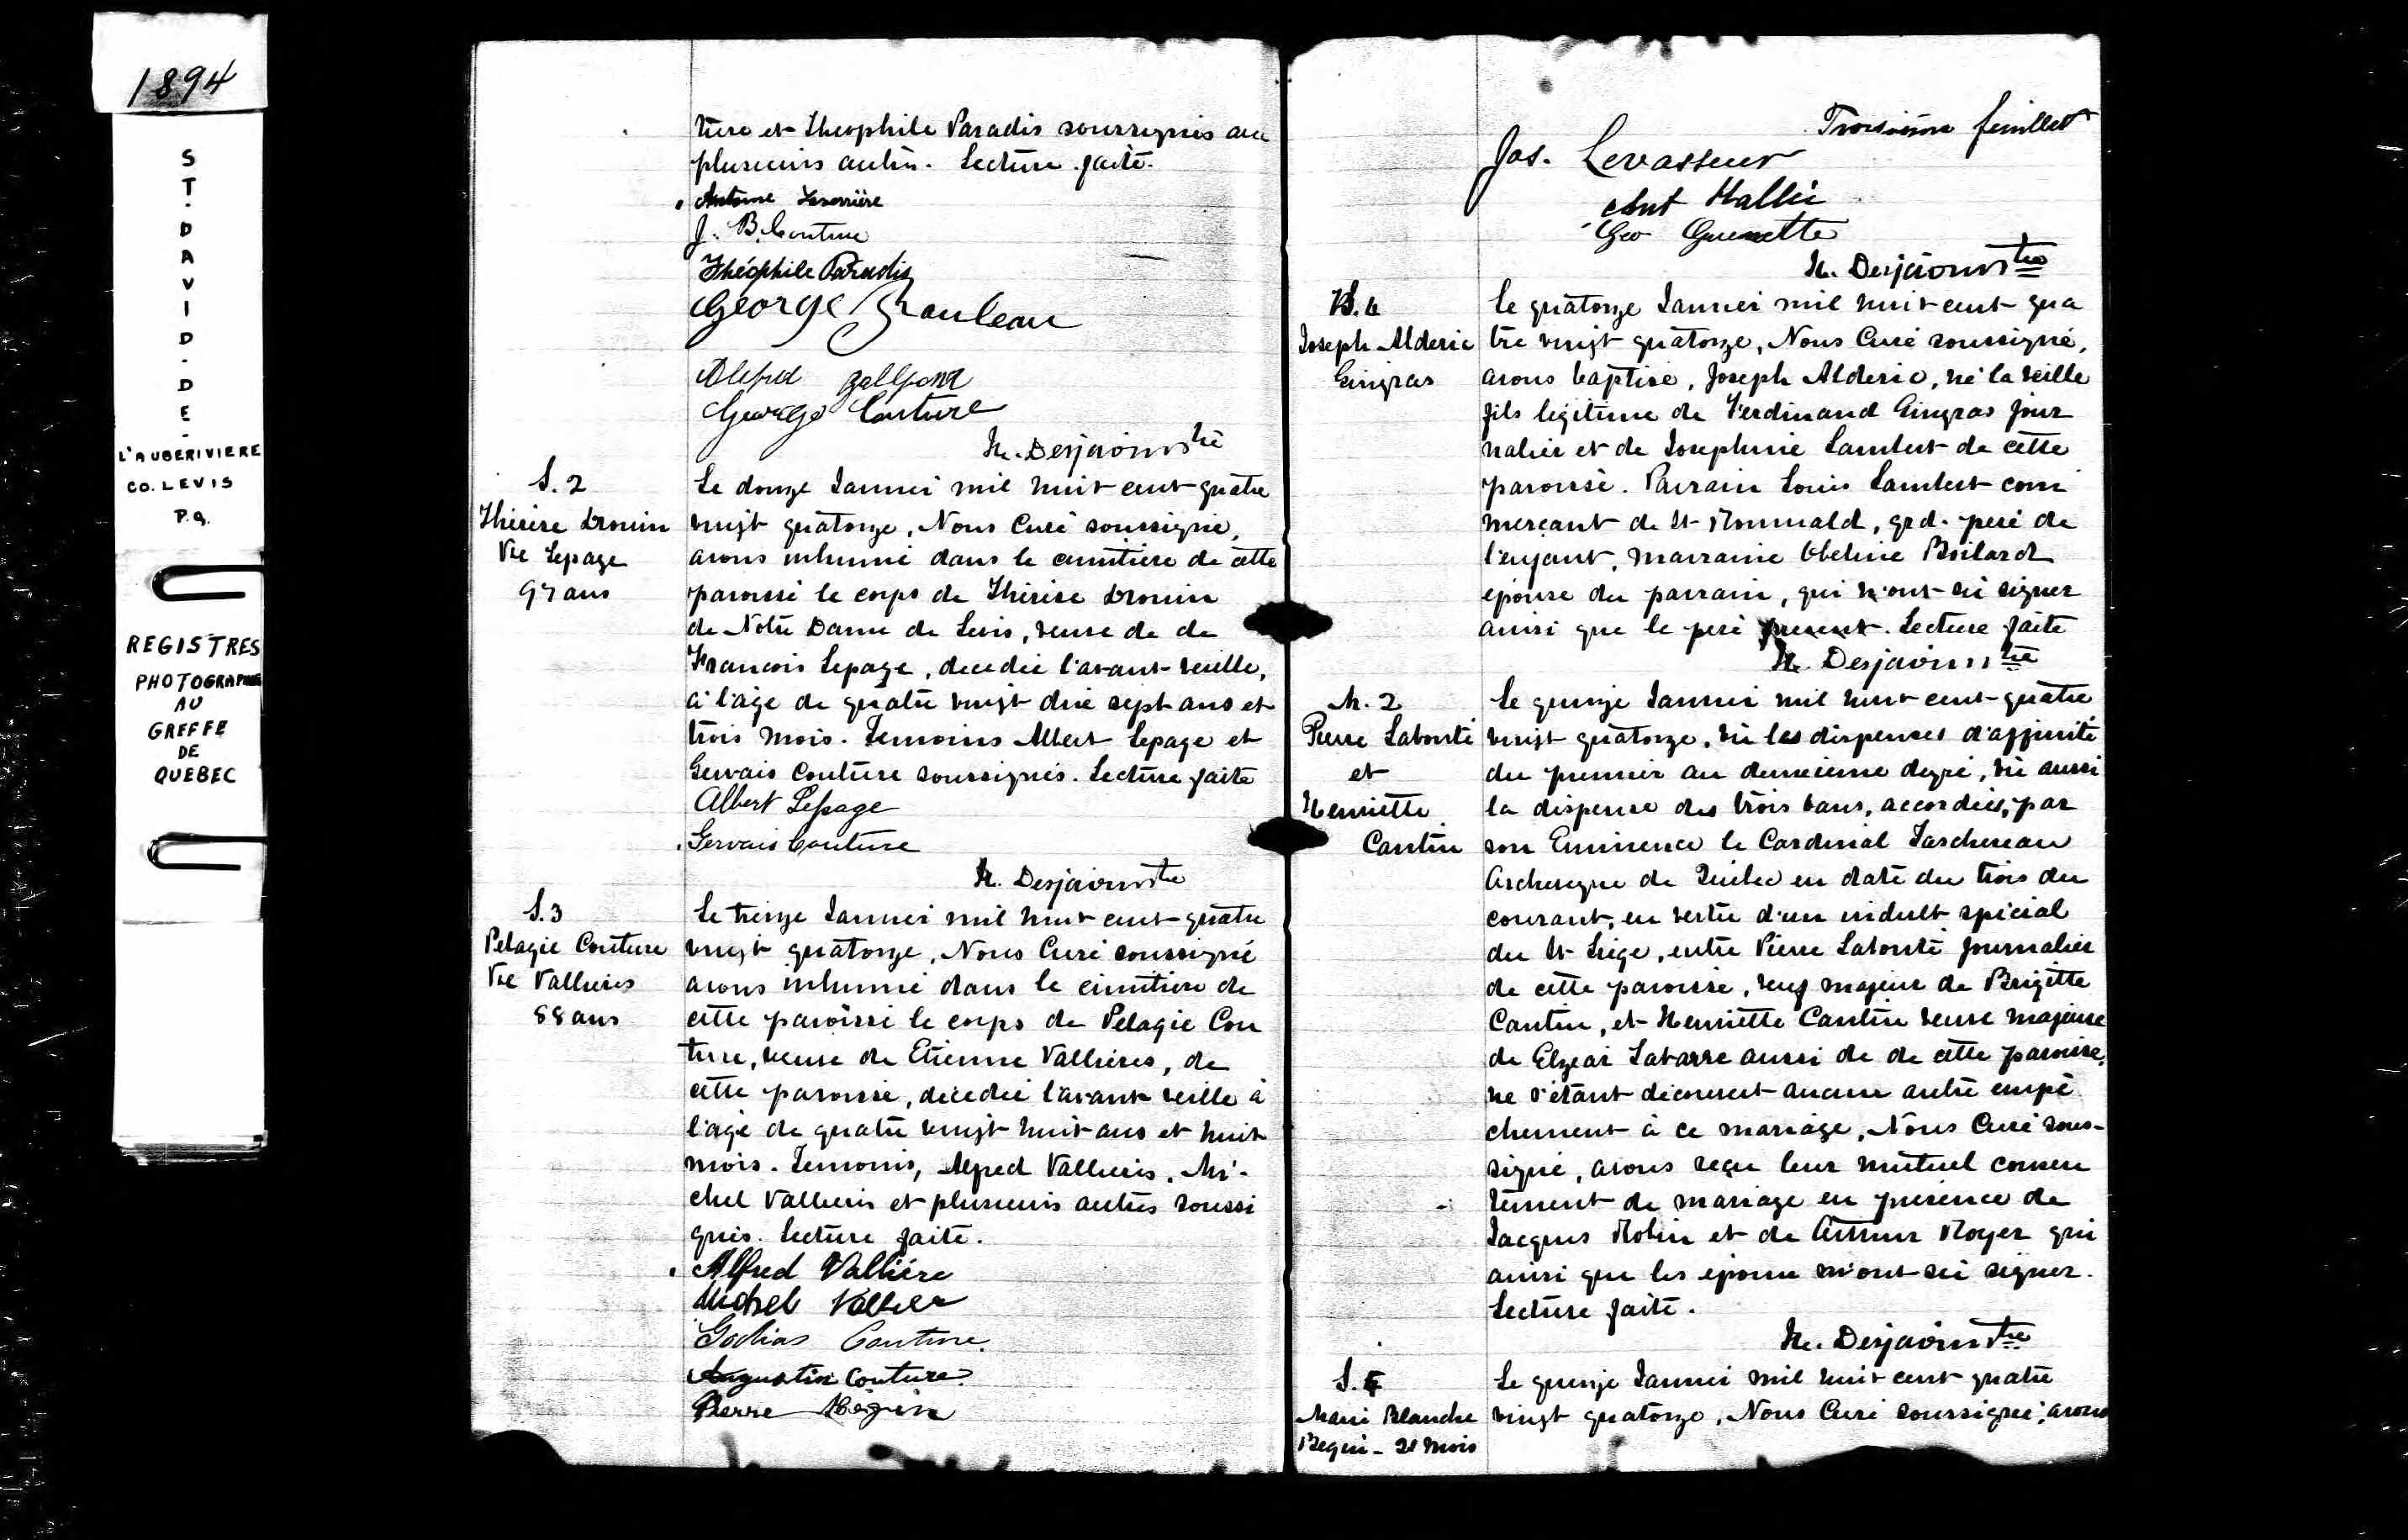 1894
ST. DAVID. DE.
L'AUBERIVIERE
CO. LEVIS
P.Q.
REGISTRES
PHOTOGRAPHIÉS
AU
GREFFE
DE
QUEBEC
tière et Théophile Paradis soussignés avec
plusieurs autres. Lecture faite.
J. B. Couture
Théophile Paradis
George
Alfred
George Couture
N. Desjardins Ptre
S. 2
Thérèse Drouin
Vve Lepage
97 ans
Le douze Janvier mil huit cent quatre
vingt quatorze, Nous Curé soussigné,
avons inhumé dans le cimetière de cette
paroisse le corps de Thérèse Drouin
de Notre Dame de Levis, veuve de de
François Lepage, decedée l'avant-veille,
à l'âge de quatre vingt dix sept ans et
trois mois. Temoins Albert Lepage et
Gervais Couture soussignés. Lecture faite
Albert Lepage
Gervais Couture
N. Desjardins Ptre
S. 3
Pelagie Couture
Vve Vallières
88 ans
Le treize Janvier mil huit cent quatre
vingt quatorze, Nous Curé soussigné
avons inhumé dans le cimetière de
cette paroisse le corps de Pelagie Cou
ture, veuve de Etienne Vallières, de
cette paroisse, décedée l'avant veille à
l'age de quatre vingt huit ans et huit
mois. Temoins, Alfred Vallières, Mi-
chel Vallières et plusieurs autres soussi
gnés. Lecture faite.
Alfred Vallière
Michel Vallier
Godias Couture
Augustin Couture
Pierre Bégin
Troisième feuillet
Jos. Levasseur
Ant Hallé
Geo Guenette
N. Desjardins Ptre
B. 4
Joseph Alderic
Gingras
Le quatorze Janvier mil huit cent qua
tre vingt quatorze, Nous Curé soussigné,
avons baptisé, Joseph Alderic, né la veille
fils légitime de Ferdinand Gingras jour
nalier et de Josephine Lambert de cette
paroisse. Parrain Louis Lambert com
merçant de St Romuald, grd. père de
l'enfant, marraine Obeline Boilard
épouse du parrain, qui n'ont su signer
ainsi que le père present. Lecture faite
N. Desjardins Ptre
M. 2
Pierre Labonté
et
Henriette
Cantin
Le quinze Janvier mil huit cent quatre
vingt quatorze, vu les dispenses d'affinité
du premier au deuxieme degré, vu aussi
la dispense des trois bans, accordées, par
son Eminence le Cardinal Taschereau
Archevêque de Québec en date du trois du
courant, en vertu d'un indult spécial
du St Siège, entre Pierre Labonté Journalier
de cette paroisse, veuf majeur de Brigitte
Cantin, et Henriette Cantin veuve majeure
de Elzear Labarre aussi de de cette paroisse,
ne s'étant découvert aucun autre empê
chement à ce mariage, Nous Curé sous-
signé, avons reçu leur mutuel consen
tement de mariage en présence de
Jacques Robin et de Arthur Royer qui
ainsi que les époux n'ont su signer.
Lecture faite.
N. Desjardins Ptre
S.
Marie Blanche
Begin - 21 mois
Le quinze Janvier mil huit cent quatre
vingt quatorze, Nous Curé soussigné, avons